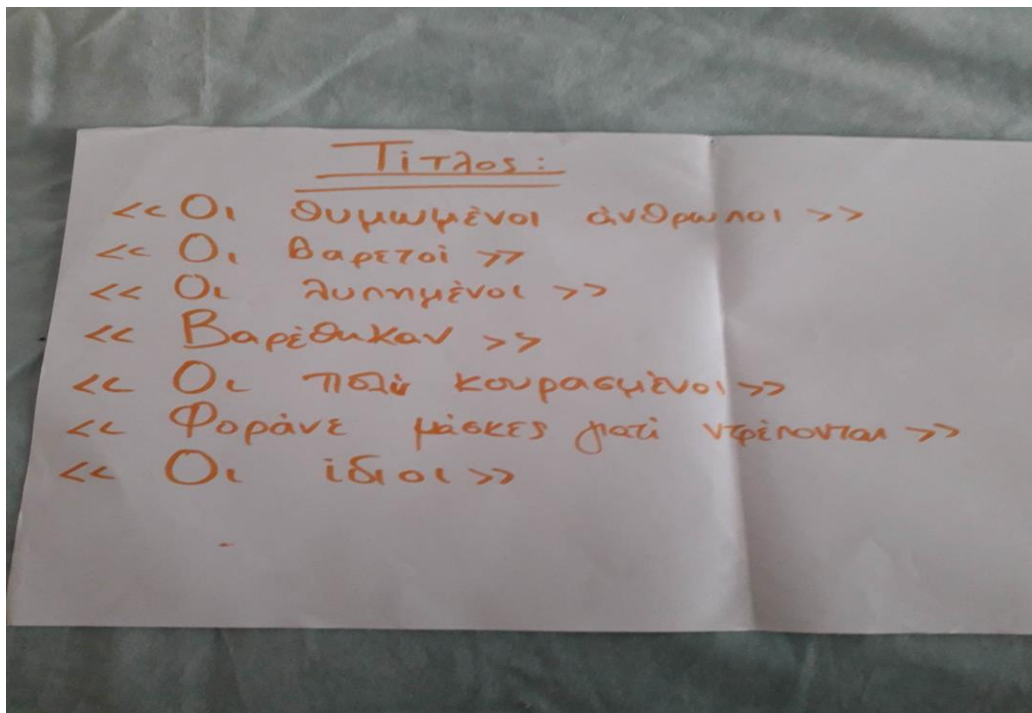 Τίτλος:
<< Οι θυμωμένοι άνθρωποι >>
<< Οι βαρετοί >>
<< Οι λυπημένοι >>
<< Βαρέθηκαν >>
<< Οι πολύ κουρασμένοι >>
<< Φοράνε μάσκες γιατί ντρέπονται >>
<< Οι ίδιοι >>